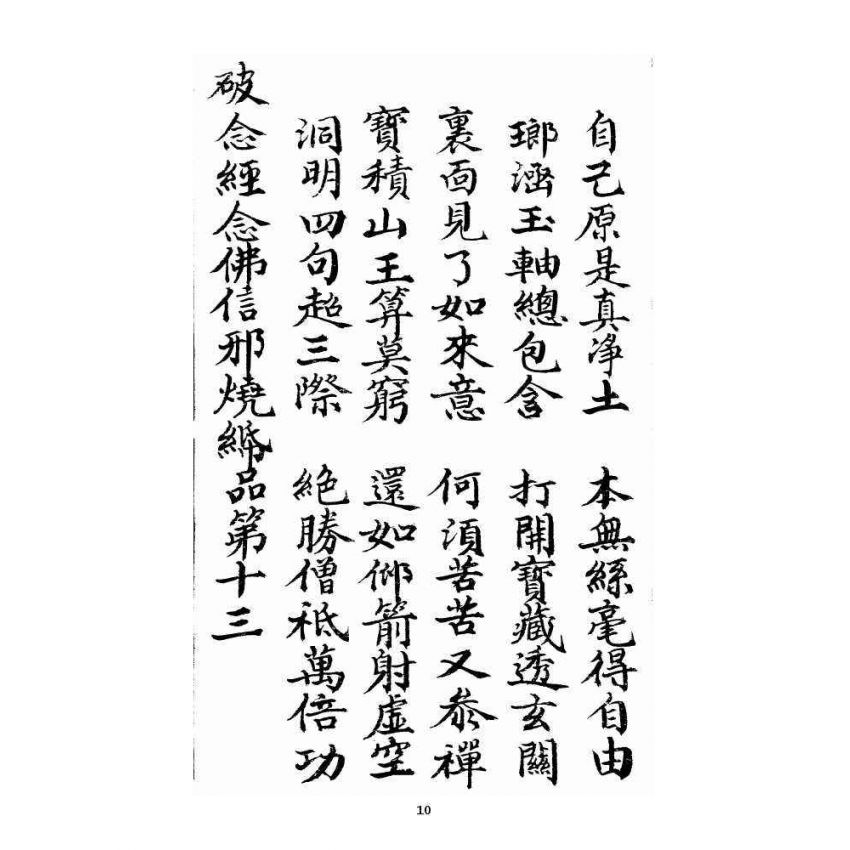 自己原是真淨土　本無絲毫得自由
瑯涵玉軸總包含　打開寶藏透玄關
裏面見了如來意　何須苦苦又參禪
寶積山王算莫窮　還如仰箭射虛空
洞明四句超三際　絕勝僧祇萬倍功
破念經念佛信邪燒紙品第十三
10